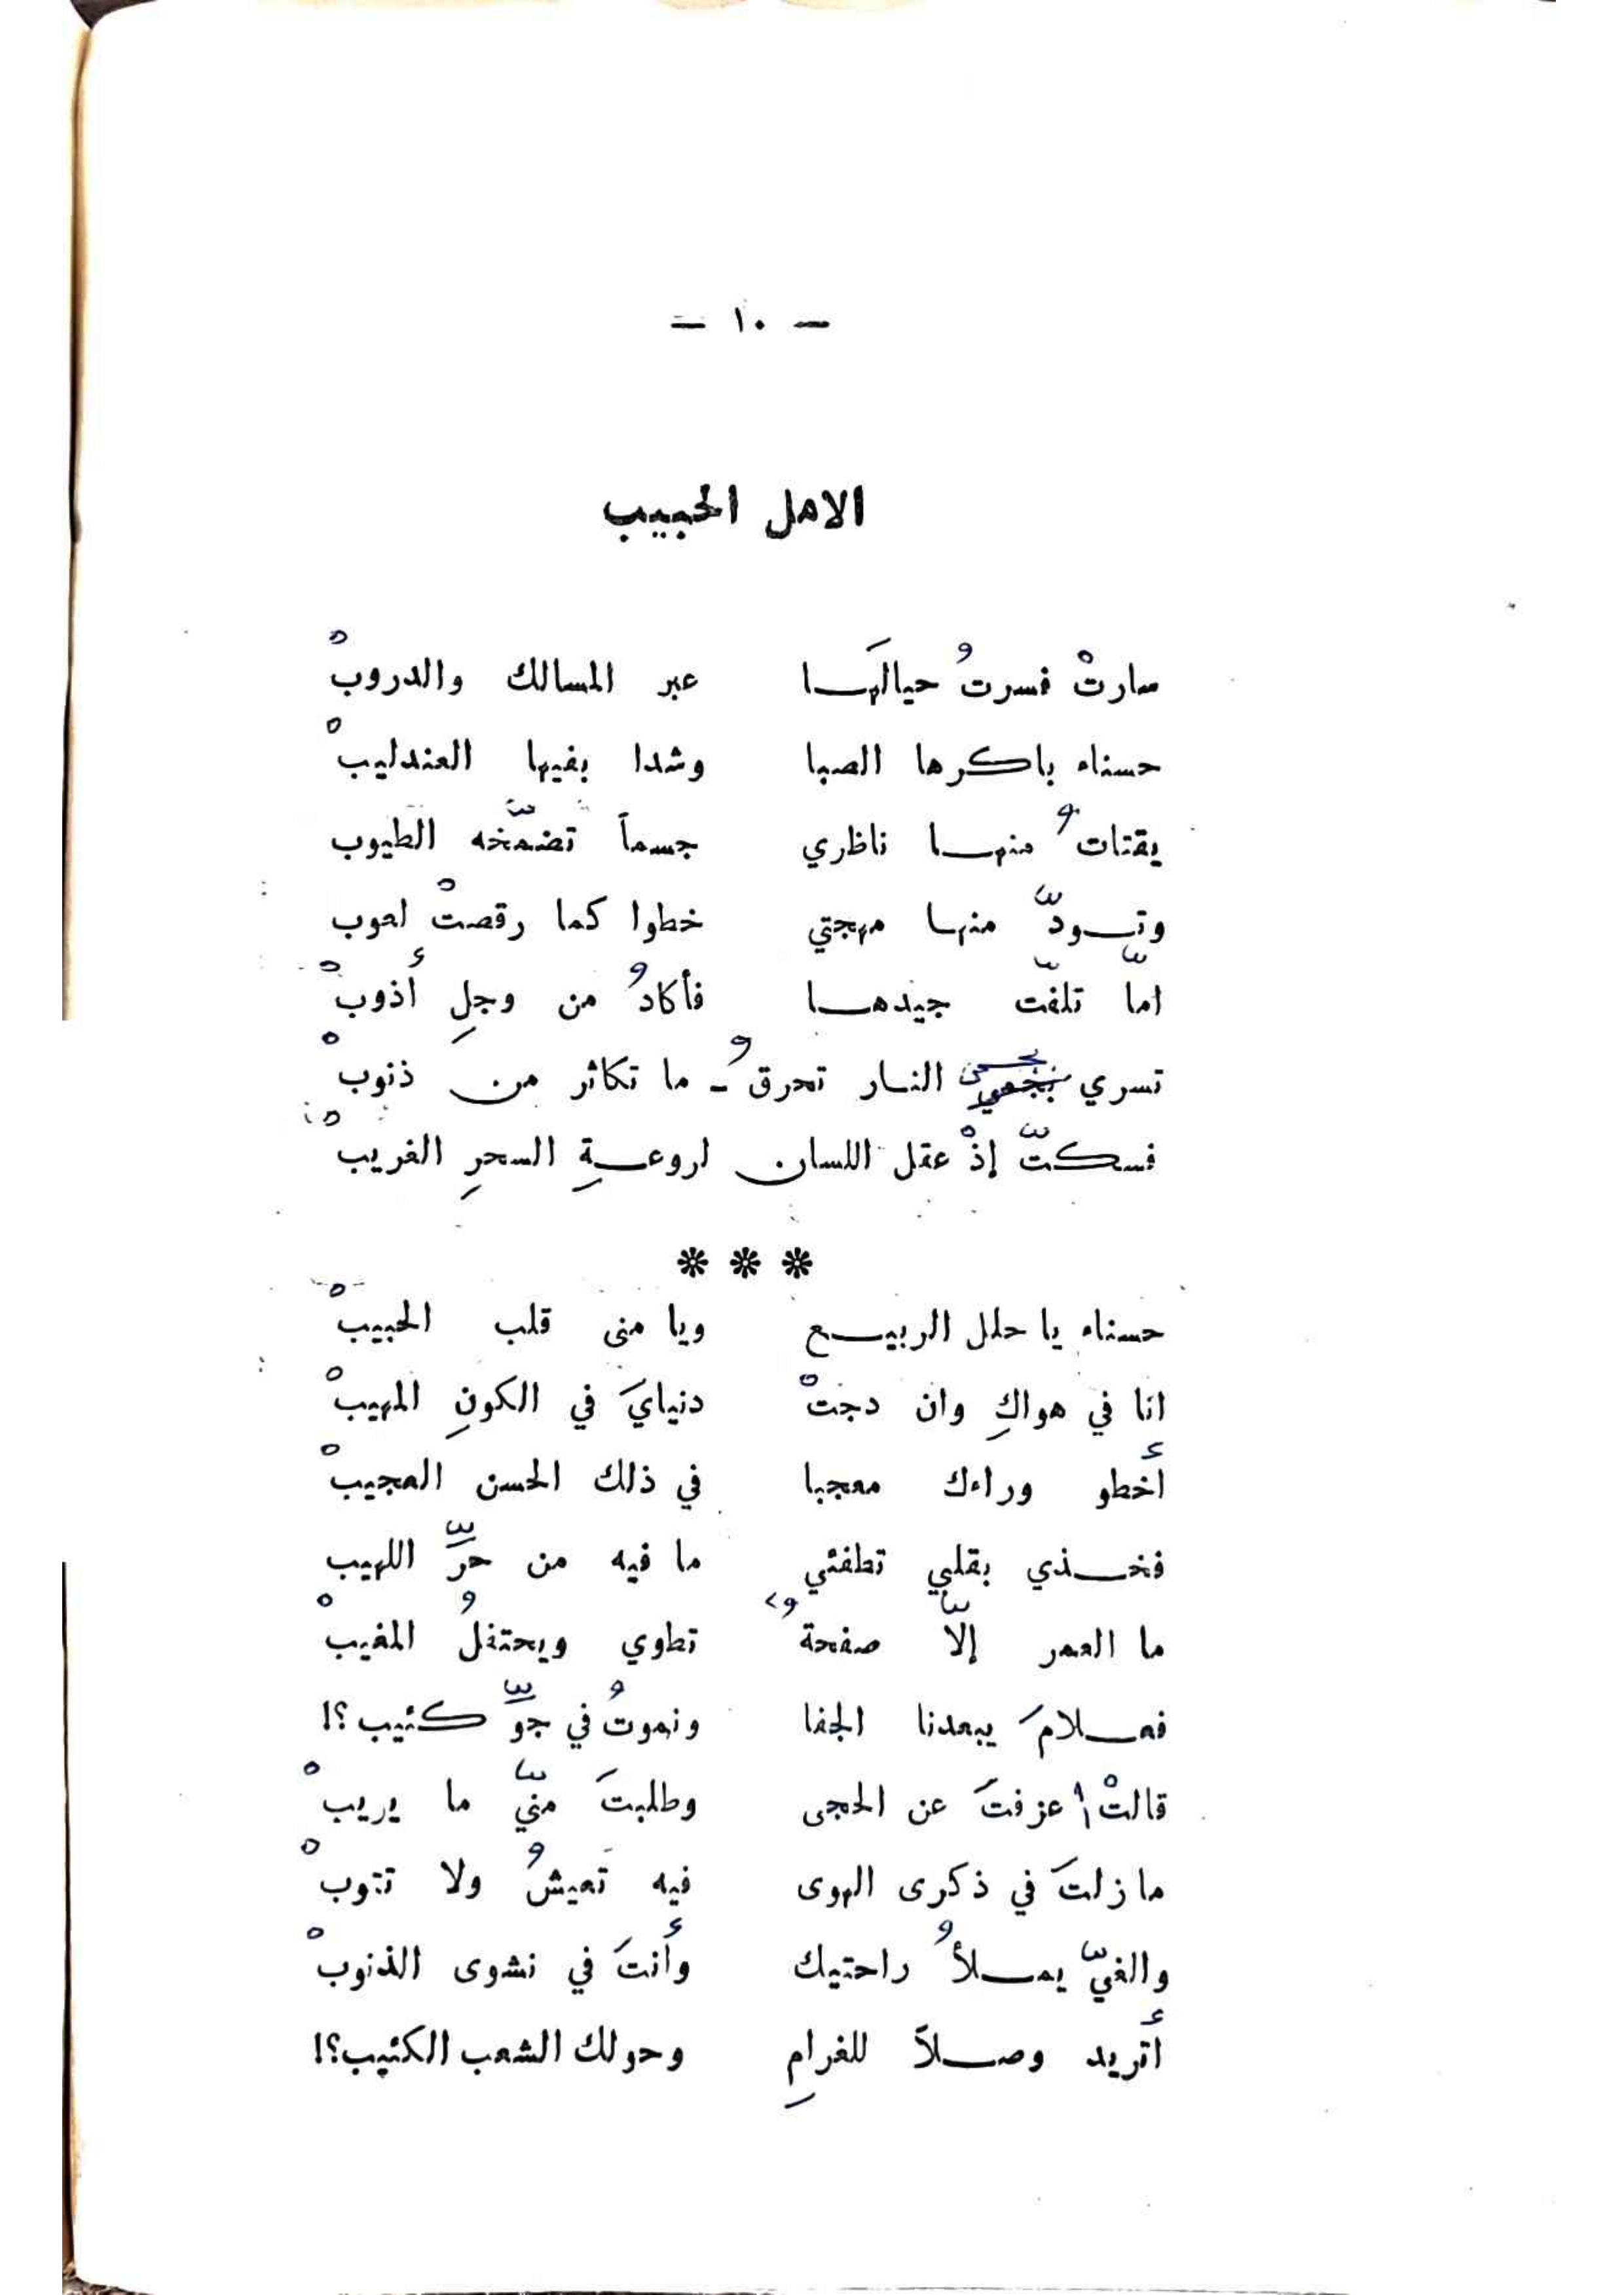 — ١٠ —
الامل الحبيب
سارتْ فسرتُ حيالَهـــا عبر المسالك والدروبْ
حسناء باكرها الصبا وشدا بفيها العندليبْ
يقتاتُ منهـــا ناظري جسماً تضمّخه الطيوب
وتـــودّ منهـا مهجتي خطوا كما رقصتْ لعوب
امّا تلفّت جيدهـــا فأكادُ من وجلِ أذوبْ
تسري النـار تحرقُ ـ ما تكاثر من ذنوبْ
فسكتّ إذْ عقل اللسان لروعـــةِ السحرِ الغريبْ
❋ ❋ ❋
حسناء يا حلل الربيـــع ويا منى قلب الحبيبْ
انا في هواكِ وان دجتْ دنيايَ في الكونِ المهيبْ
أخطو وراءك معجبا في ذلك الحسن العجيبْ
فخـــذي بقلبي تطفئي ما فيه من حرِّ اللهيب
ما العمر إلّا صفحةُ تطوي ويحتفلُ المغيبْ
فعـــلامَ يبعدنا الجفا ونموتُ في جوِّ كئيب ؟!
قالتْ أعزفتَ عن الحجى وطلبتَ منّي ما يريبْ
ما زلتَ في ذكرى الهوى فيه تعيشُ ولا تتوبْ
والغيّ يمـــلأُ راحتيك وأنتَ في نشوى الذنوبْ
أتريد وصـــلاً للغرامِ وحولك الشعب الكئيب؟!